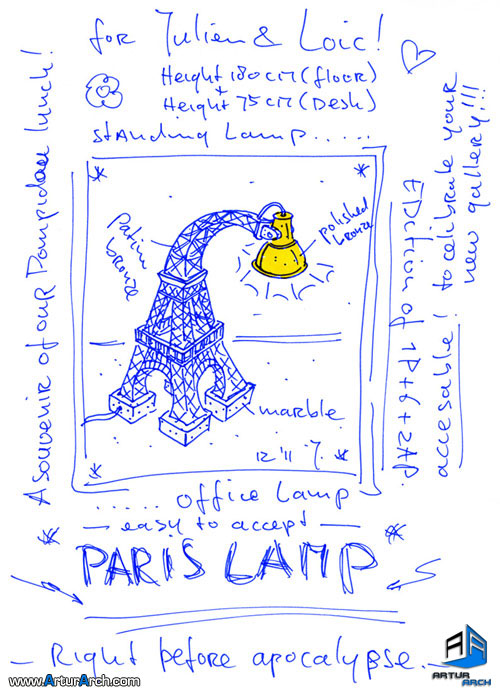 for Julien & Loic!
Height 180cm (floor)
+
Height 75cm (Desk)
standing Lamp.....
A souvenir of our Pompidou lunch!
to celibrate your
new gallery!!!
EDition of 1P+6+2AP.
accesable!
patin
bronze
polished
bronze
marble
12'11
..... office Lamp
— easy to accept —
PARIS LAMP
— Right before apocalypse. —
www.ArturArch.com
ARTUR
ARCH